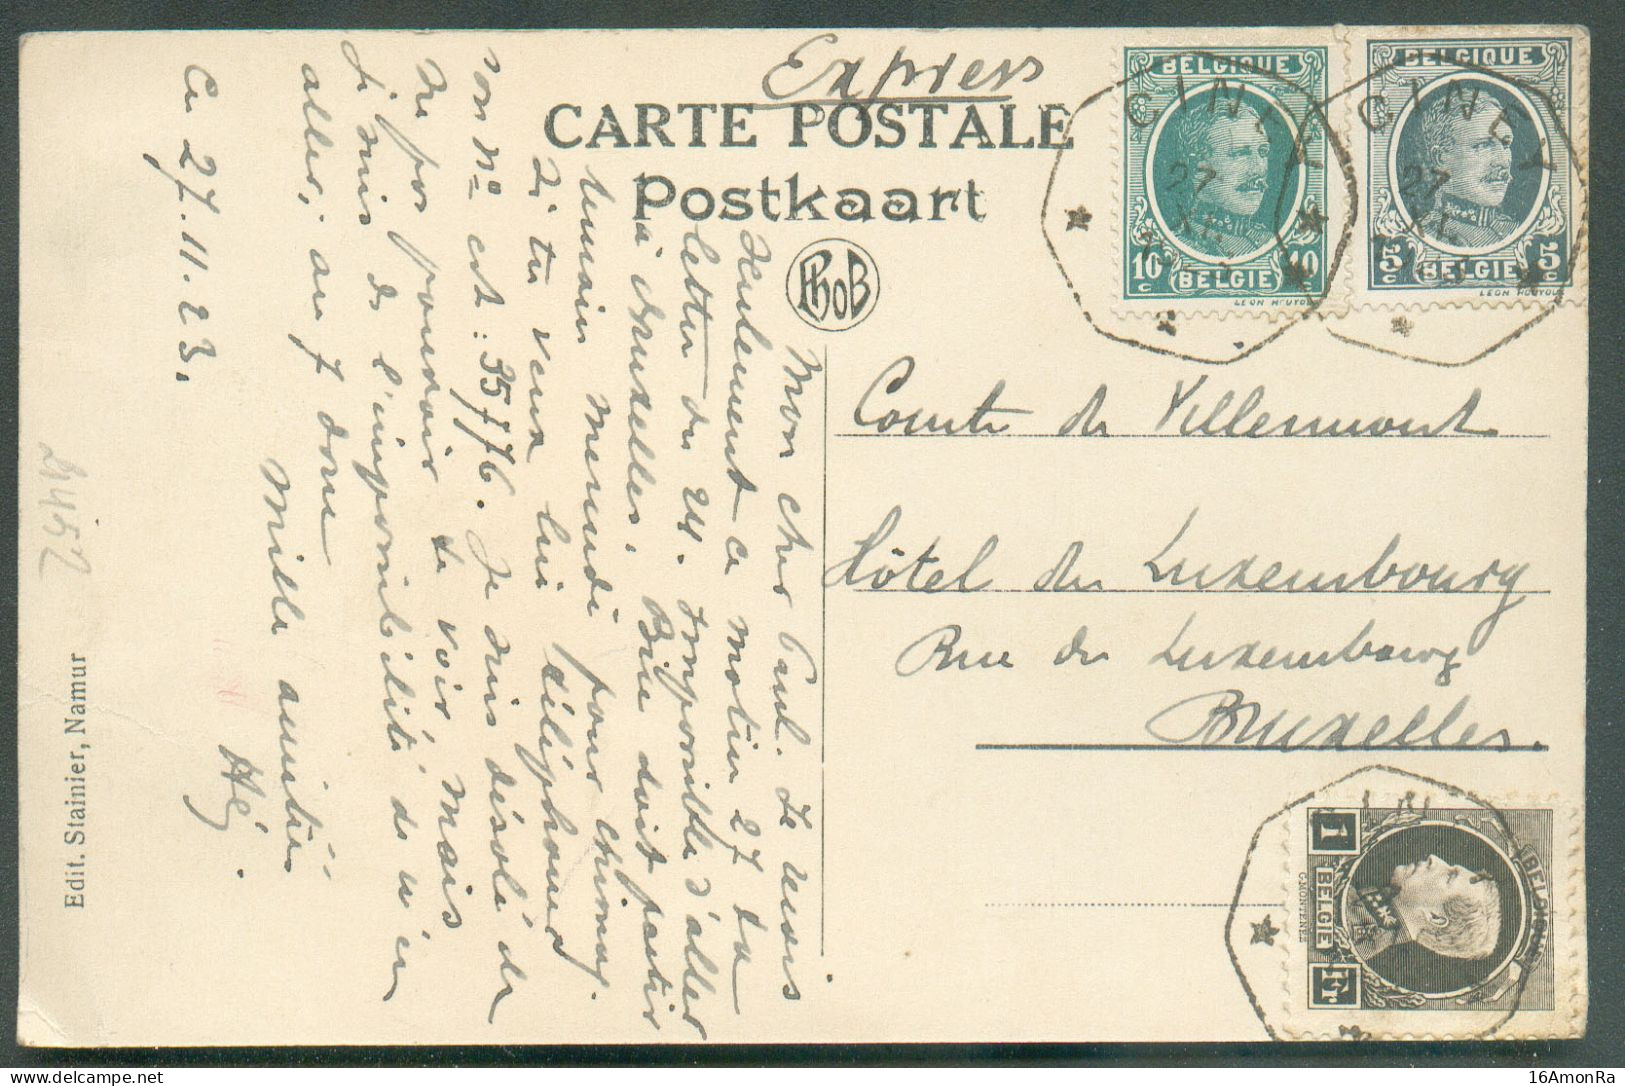 Express
CARTE POSTALE
Postkaart
PhoB
BELGIQUE
10c 10c
BELGIE
LEON HOUYOUX
BELGIQUE
5c 5c
BELGIE
LEON HOUYOU
CINEY
27
CINEY
27
Mon cher Paul. Je reçois
seulement ce matin 27 ta
lettre du 24. Impossible d'aller
à Bruxelles. Bise doit partir
demain mercredi pour Chimay.
Si tu veux lui téléphoner
son No est : 35776. Je suis désolé de
ne pas pouvoir te voir, mais
je suis de l'impossibilité de m'en
aller, au 7 donc
Mille amitiés
Hé.
Ce 27.11.23.
Comte de Villermont
Hôtel du Luxembourg
Rue du Luxembourg
Bruxelles.
1 BELGIE 1Fr
BELGIQUE
G.MONTENEZ
2452
Edit. Stainier, Namur
16AmonRa